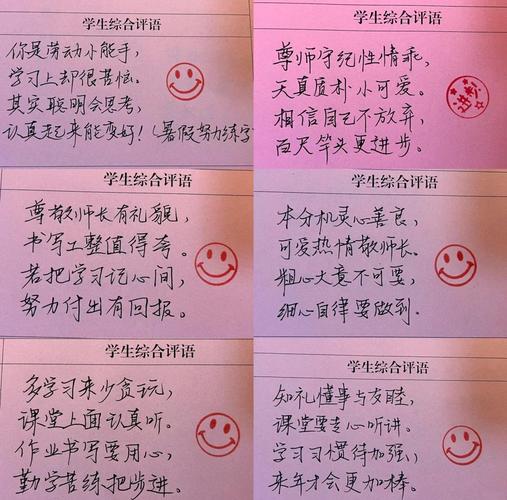 学生综合评语
你是劳动小能手，
学习上却很苦恼。
其实聪明会思考，
认真起来能变好！（暑假努力练字
学生综合评语
尊师守纪性情乖，
天真质朴小可爱。
相信自己不放弃，
百尺竿头更进步。
进步
学生综合评语
尊敬师长有礼貌，
书写工整值得夸。
若把学习记心间，
努力付出有回报。
学生综合评语
本分机灵心善良，
可爱热情敬师长。
粗心大意不可要，
细心自律要做到．
学生综合评语
多学习来少贪玩，
课堂上面认真听。
作业书写要用心，
勤学苦练把步进。
学生综合评语
知礼懂事与友睦，
课堂要专心听讲。
学习习惯待加强，
来年才会更加棒。